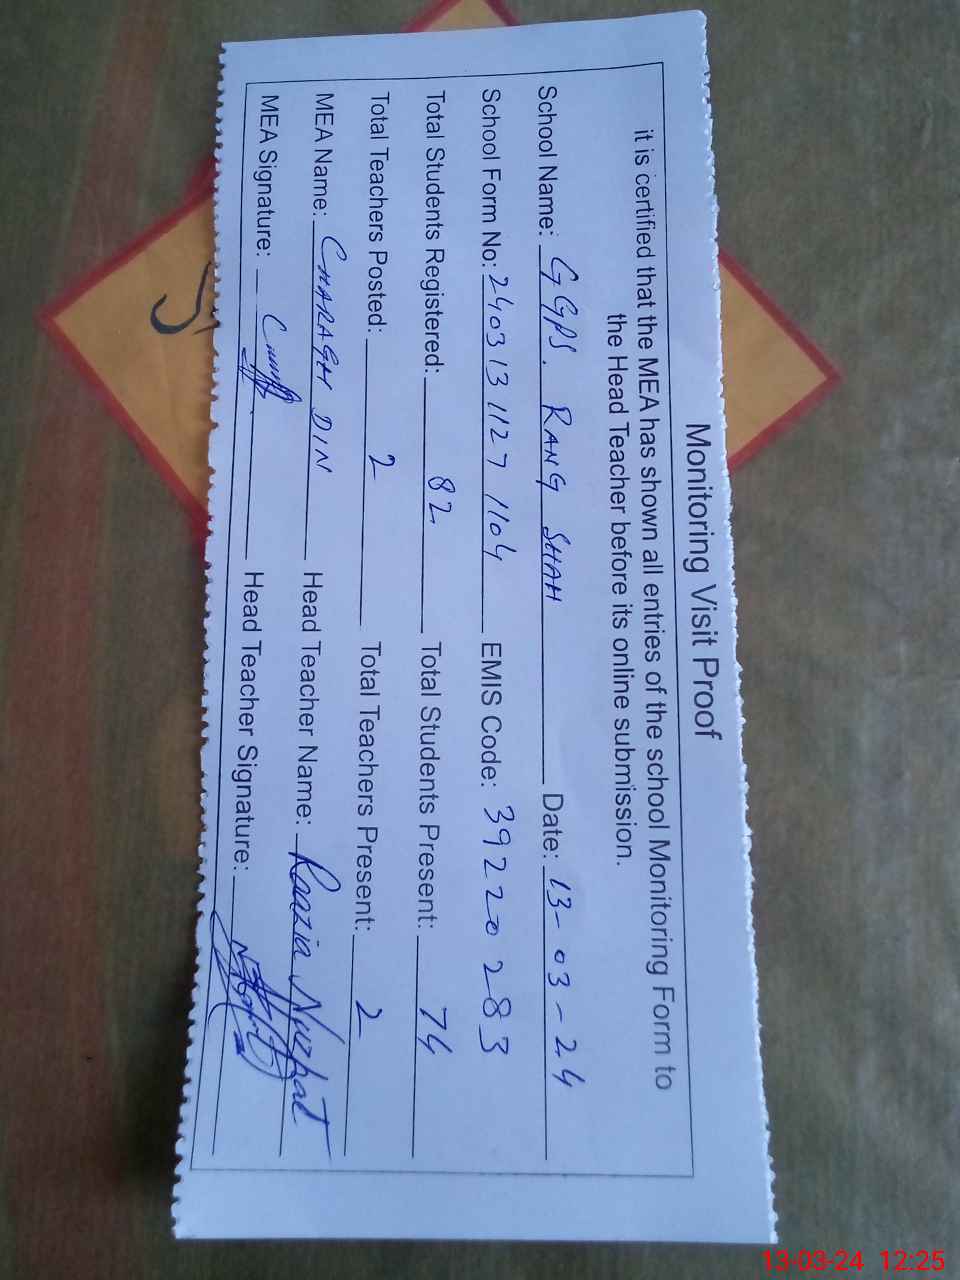 Monitoring Visit Proof
it is certified that the MEA has shown all entries of the school Monitoring Form to
the Head Teacher before its online submission.
School Name: GGPS. RANG SHAH Date: 13-03-24
School Form No: 2403131127 1104 EMIS Code: 39220283
Total Students Registered: 82 Total Students Present: 74
Total Teachers Posted: 2 Total Teachers Present: 2
MEA Name: CHARAGH DIN Head Teacher Name: Raazia Nuzhat
MEA Signature: Head Teacher Signature:
13-03-24 12:25